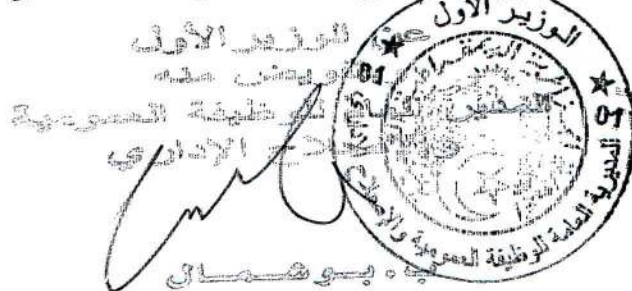 عن الوزير الأول
وبتفويض منه
المدير العام للوظيفة العمومية
والإصلاح الإداري
ب. بوشمال
الوزير الأول
01
01
المديرية العامة للوظيفة العمومية والإصلاح